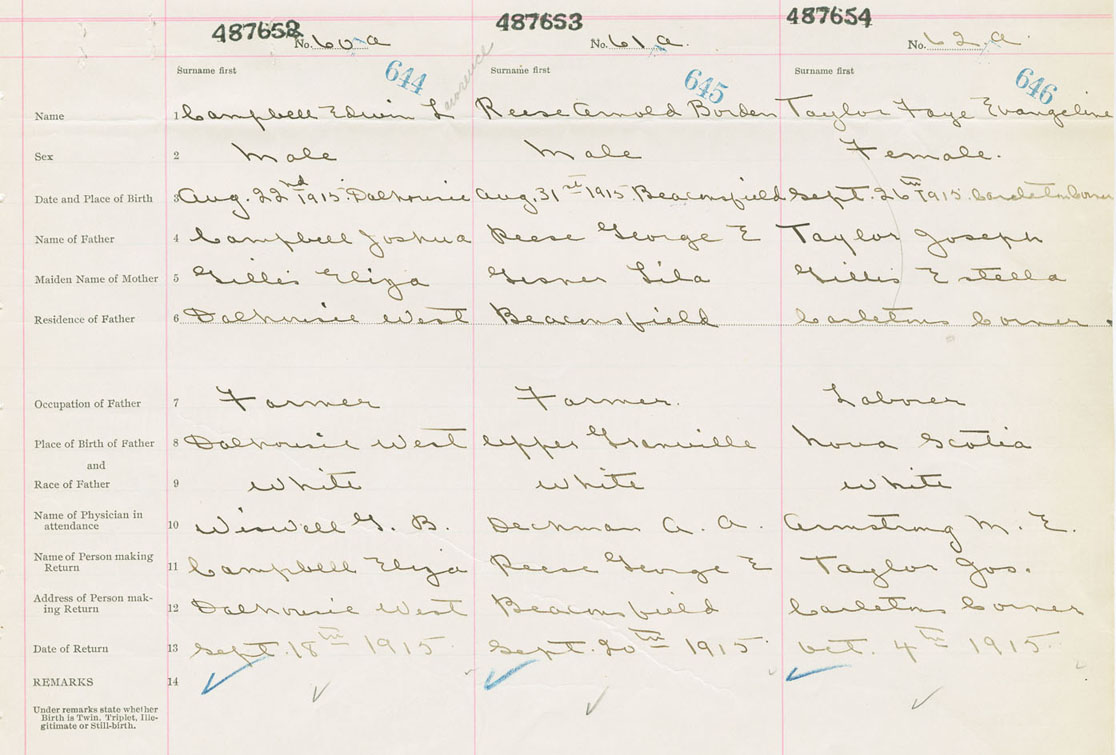 487652 487653 487654
No. 60 a No. 61 a. No. 62. a.
Surname first Surname first Surname first
644 645 646
Name 1 Campbell Edwin L Reese Arnold Borden Taylor Faye Evangeline
Sex 2 Male Male Female.
Date and Place of Birth 3 Aug. 22nd 1915. Dalhousie Aug. 31st 1915. Beaconsfield Sept. 26th 1915. Carleton Corner
Name of Father 4 Campbell Joshua Reese George E Taylor Joseph
Maiden Name of Mother 5 Gillis Eliza Gesner Lila Gillis Estella
Residence of Father 6 Dalhousie West Beaconsfield Carletons Corner
Occupation of Father 7 Farmer Farmer. Labourer
Place of Birth of Father 8 Dalhousie West Upper Granville Nova Scotia
and
Race of Father 9 White White White
Name of Physician in
attendance 10 Wiswell G. B. Deckman A. A. Armstrong M. E.
Name of Person making
Return 11 Campbell Eliza Reese George E Taylor Jos.
Address of Person mak-
ing Return 12 Dalhousie West Beaconsfield Carletons Corner
Date of Return 13 Sept. 18th 1915. Sept. 20th 1915. Oct. 4th 1915.
REMARKS 14
Under remarks state whether
Birth is Twin, Triplet, Ille-
gitimate or Still-birth.